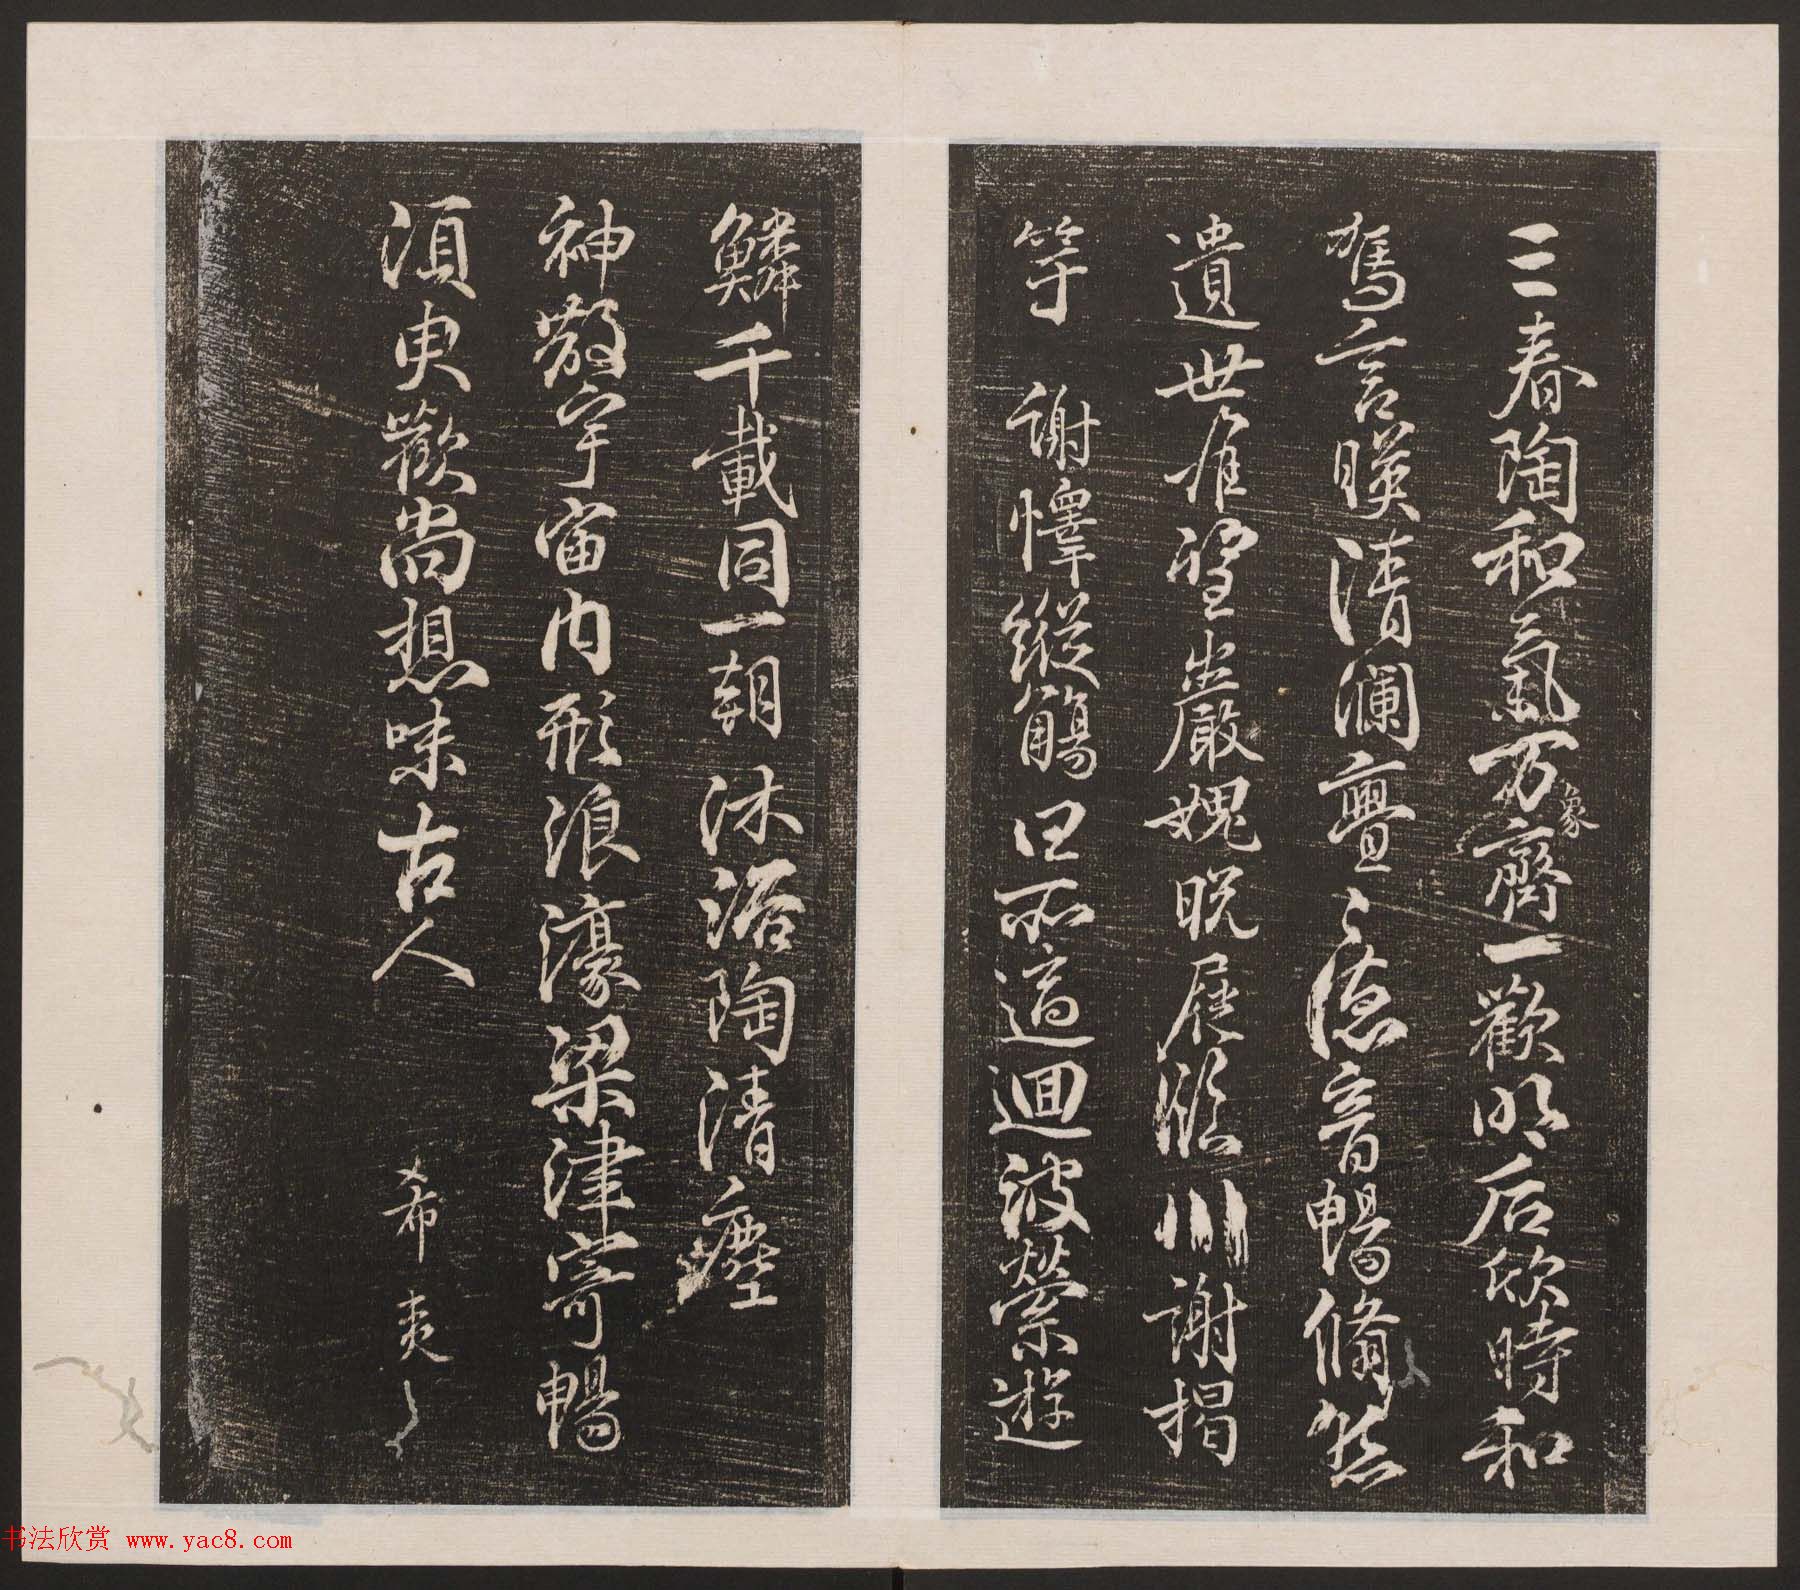 三春陶和氣万象齊一歡明后欣時和
駕言暎清瀾亹〻德音暢翛然
遺世難望巖愧脫屣臨川謝揭
竿 謝懌縱觴任所適迴波縈遊
鱗千載同一朝沐浴陶清塵
神散宇宙內形浪濠梁津寄暢
須臾歡尚想味古人
希夷
书法欣赏 www.yac8.com